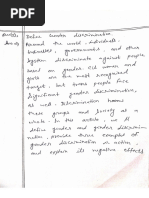 Define Gender discrimination
Around the world, individuals,
Institutes, governments, and other
System discriminate against people
based on gender. Cis women and
girls are the most recognized
target, but trans people face
Significant gender discrimination,
as well. Discrimination harms
these groups and society as a
whole. In this article, we'll
define gender and gender discrimin
-nation, provide three examples of
gender discrimination in action,
and explain its negative effects